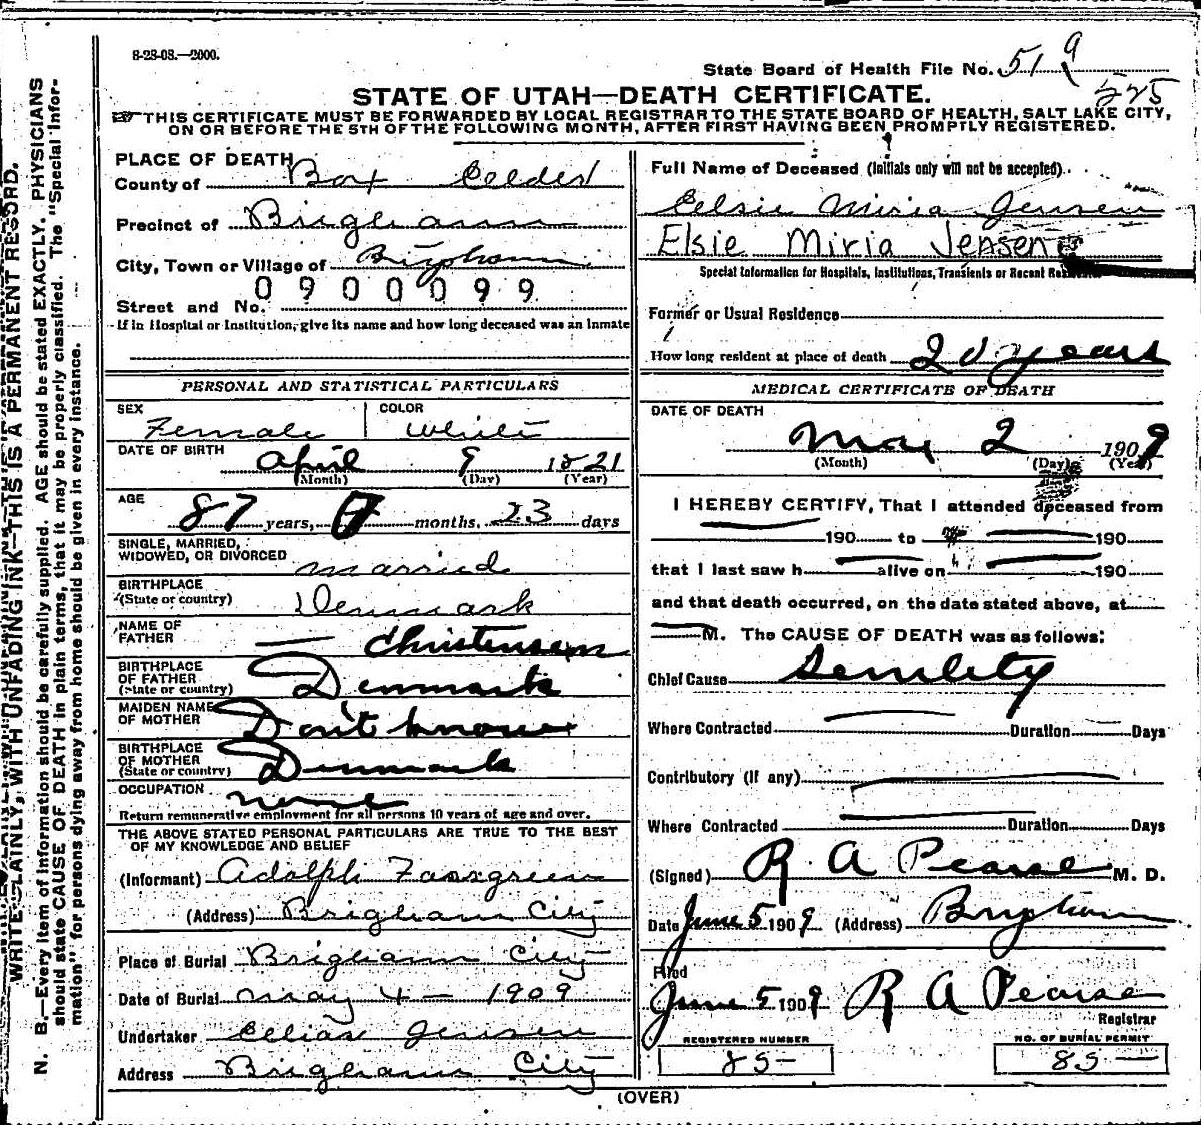 8-28-08.—2000.
State Board of Health File No. 519
525
STATE OF UTAH—DEATH CERTIFICATE.
THIS CERTIFICATE MUST BE FORWARDED BY LOCAL REGISTRAR TO THE STATE BOARD OF HEALTH, SALT LAKE CITY,
ON OR BEFORE THE 5TH OF THE FOLLOWING MONTH, AFTER FIRST HAVING BEEN PROMPTLY REGISTERED.
PLACE OF DEATH
County of Box Elder
Precinct of Brigham
City, Town or Village of Brigham
0900099
Street and No.
If in Hospital or Institution, give its name and how long deceased was an inmate
PERSONAL AND STATISTICAL PARTICULARS
SEX Female COLOR White
DATE OF BIRTH April 9 1821
(Month) (Day) (Year)
AGE 87 years, 0 months, 23 days
SINGLE, MARRIED,
WIDOWED, OR DIVORCED married
BIRTHPLACE
(State or country) Denmark
NAME OF
FATHER — Christensen
BIRTHPLACE
OF FATHER
(State or country) Denmark
MAIDEN NAME
OF MOTHER Don't know
BIRTHPLACE
OF MOTHER
(State or country) Denmark
OCCUPATION none
Return remunerative employment for all persons 10 years of age and over.
THE ABOVE STATED PERSONAL PARTICULARS ARE TRUE TO THE BEST
OF MY KNOWLEDGE AND BELIEF
(Informant) Adolph
(Address) Brigham City
Place of Burial Brigham City
Date of Burial may 4 — 1909
Undertaker Elias Jensen
Address Brigham City
Full Name of Deceased (Initials only will not be accepted)
Eelsie Miria Jensen
Elsie Miria Jensen
Special Information for Hospitals, Institutions, Transients or Recent
Former or Usual Residence
How long resident at place of death 20 years
MEDICAL CERTIFICATE OF DEATH
DATE OF DEATH
May 2 1909
(Month) (Day) (Year)
I HEREBY CERTIFY, That I attended deceased from
190 to 190
that I last saw h alive on 190
and that death occurred, on the date stated above, at
M. The CAUSE OF DEATH was as follows:
Chief Cause Senility
Where Contracted Duration Days
Contributory (If any)
Where Contracted Duration Days
(Signed) R A Pearse M. D.
Date June 5 1909 (Address) Brigham
Filed
June 5 1909 R A Pearse
Registrar
REGISTERED NUMBER NO. OF BURIAL PERMIT
85— 85—
(OVER)
WRITE PLAINLY, WITH UNFADING INK—THIS IS A PERMANENT RECORD.
N. B.—Every item of information should be carefully supplied. AGE should be stated EXACTLY. PHYSICIANS
should state CAUSE OF DEATH in plain terms, that it may be properly classified. The "Special Infor-
mation" for persons dying away from home should be given in every instance.